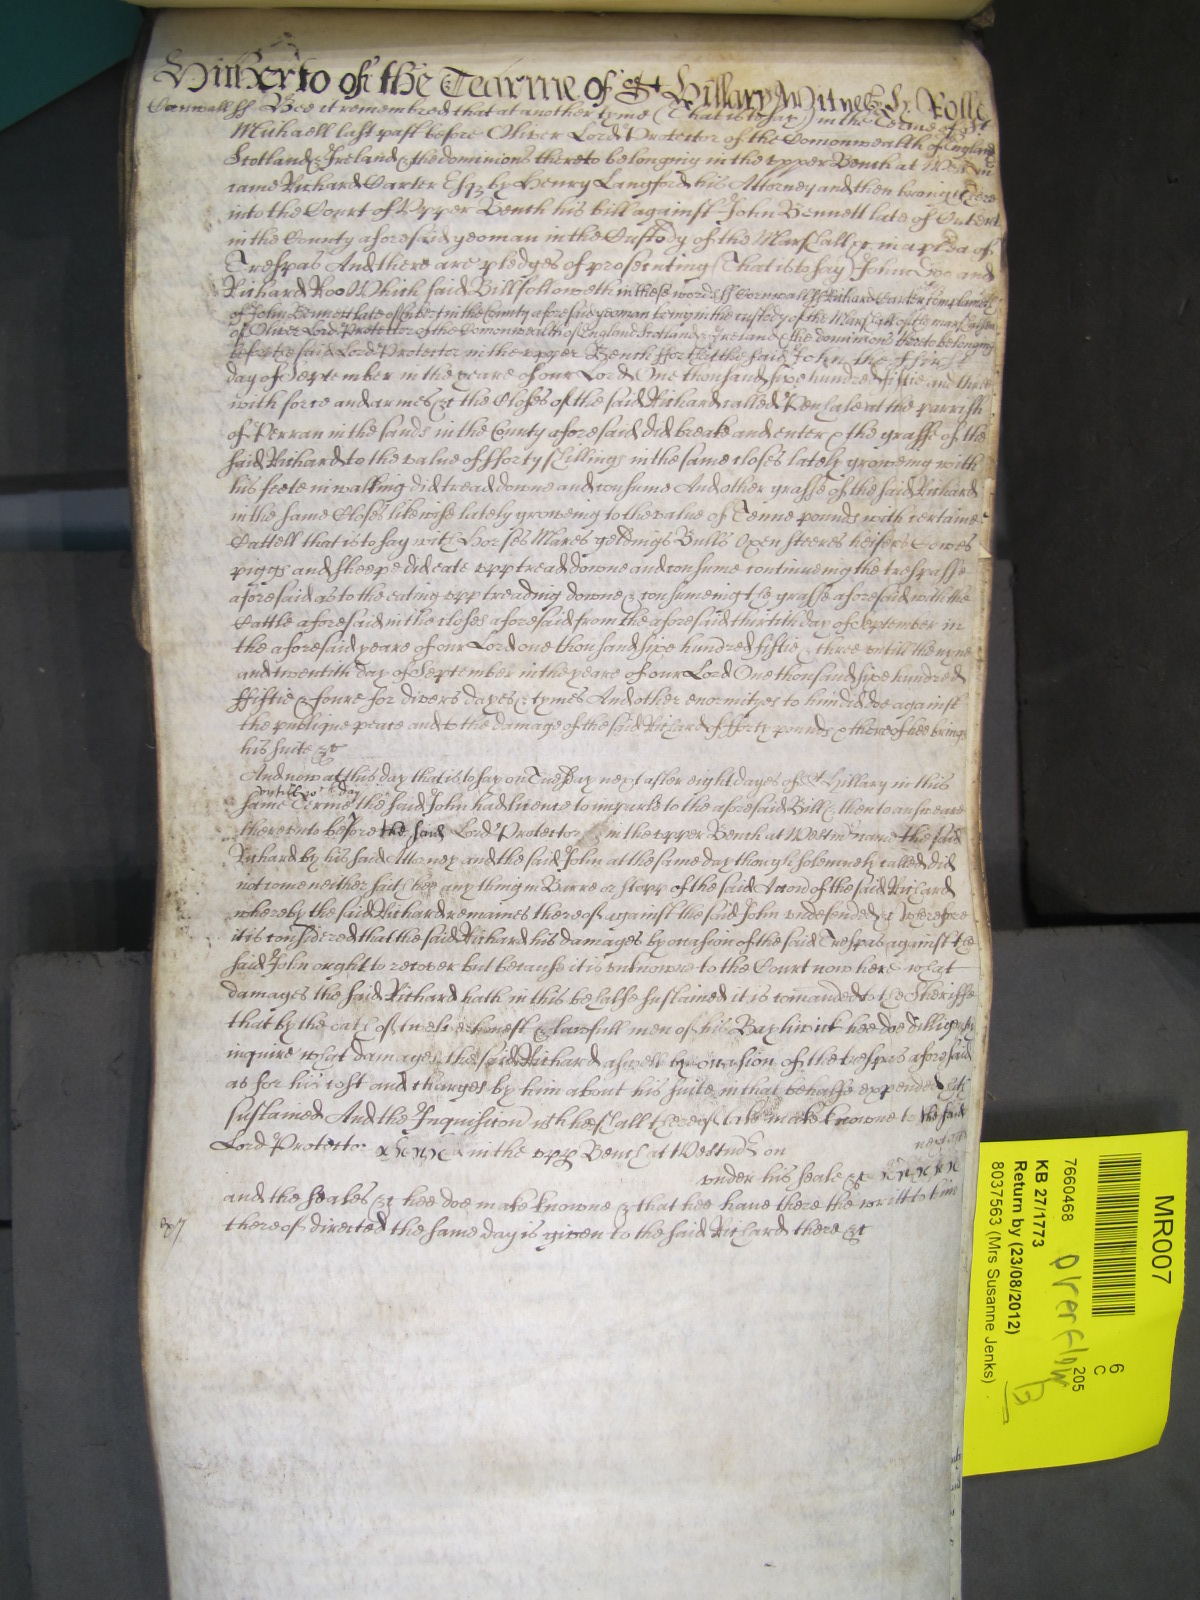 Hitherto of the Tearme of St Hillary Witnes H. Rolle
Cornwall ss Bee it remembred that at another tyme (That is to say) in the Terme of St
Michaell last past before Oliver Lord Protector of the Comonwealth of England
Scotland & Ireland & the dominions thereto belonging in the upper Bench at
came Richard Carter Esqr by Henry Langford his Attorney and then brought here
into the Court of Upper Bench his bill against John Bennett late of Cubert
in the County aforesaid yeoman in the Custody of the Marshall &c in a plea of
Trespas And there are pledges of prosecuting (That is to say) John Doe and
Richard Roo Which said Bill followeth in these words ss Cornwall ss Richard Carter complaineth
of John Bennett late of Cubert in the County aforesaid yeoman being in the custody of the Marshall of the marshalsea
of Oliver Lord Protector of the Comonwealth of England Scotland & Ireland & the dominions thereto belonging
before the said Lord Protector in the upper Bench ffor that the said John the
day of September in the yeare of our Lord One thousand sixe hundred fiftie and three
with force and armes &c the Closes of the said Richard called Penhale at the parrish
of Perran in the sands in the County aforesaid did breake and enter & the grasse of the
said Richard to the value of fforty shillings in the same closes lately groweing with
his feete in walking did tread downe and consume And other grasse of the said Richard
in the same Closes likewise lately groweing to the value of Tenne pounds with certaine
Cattell that is to say with Horses Mares geldings Bulls Oxen steeres heifers Cowes
piggs and sheepe did eate upp tread downe and consume continueing the trespasse
aforesaid as to the eating upp treading downe & consumeing the grasse aforesaid with the
Cattle aforesaid in the closes aforesaid from the aforesaid thirtith day of September in
the aforesaid yeare of our Lord one thousand sixe hundred fiftie & three untill the nyne
and twentith day of September in the yeare of our Lord One thousand sixe hundred
ffiftie & foure for divers dayes & tymes And other enormityes to him did doe against
the publique peace and to the damage of the said Richard fforty pounds & thereof hee brings
his suite &c
And now at this day that is to say on Tuesday next after eight dayes of St Hillary in this
same Terme untill which day the said John had licence to imparle to the aforesaid Bill & then to answeare
thereunto before the said Lord Protector in the upper Bench at Westmr came the said
Richard by his said Attorney and the said John at the same day though solemnely called did
not come neither saith hee any thing in Barre or stopp of the said Accon of the said Richard
whereby the said Richard remaines thereof against the said John undefended &c Wherefore
it is considered that the said Richard his damages by occasion of the said Trespas against the
said John ought to recover but because it is unknowne to the Court now here what
damages the said Richard hath in this behalfe sustained it is comanded to the Sheriffe
that by the oath of twelve honest & lawfull men of his Baylywick hee doe dilligently
inquire what damages the said Richard aswell by occasion of the trespas aforesaid
as for his cost and charges by him about his suite in that behalfe expended hath
sustained And the Inquisicon wch he shall thereof take make knowne to the said
Lord Protector in the upp Bench at Westmr on next after
under his seale &c
and the seales &c hee doe make knowne & that hee have there the writt to him
thereof directed the same day is given to the said Richard there &c
MR007
7660468
KB 27/1773
Return by (23/08/2012)
8037563 (Mrs Susanne Jenks)
6
C
205
overflow
B